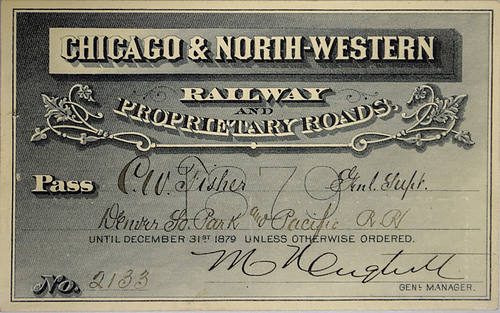 CHICAGO & NORTH-WESTERN
RAILWAY
AND
PROPRIETARY ROADS.
1879
Pass C. W. Fisher Genl. Supt.
Denver So. Park & Pacific R R
UNTIL DECEMBER 31ST 1879 UNLESS OTHERWISE ORDERED.
M Hughitt
No. 2133 GENL MANAGER.